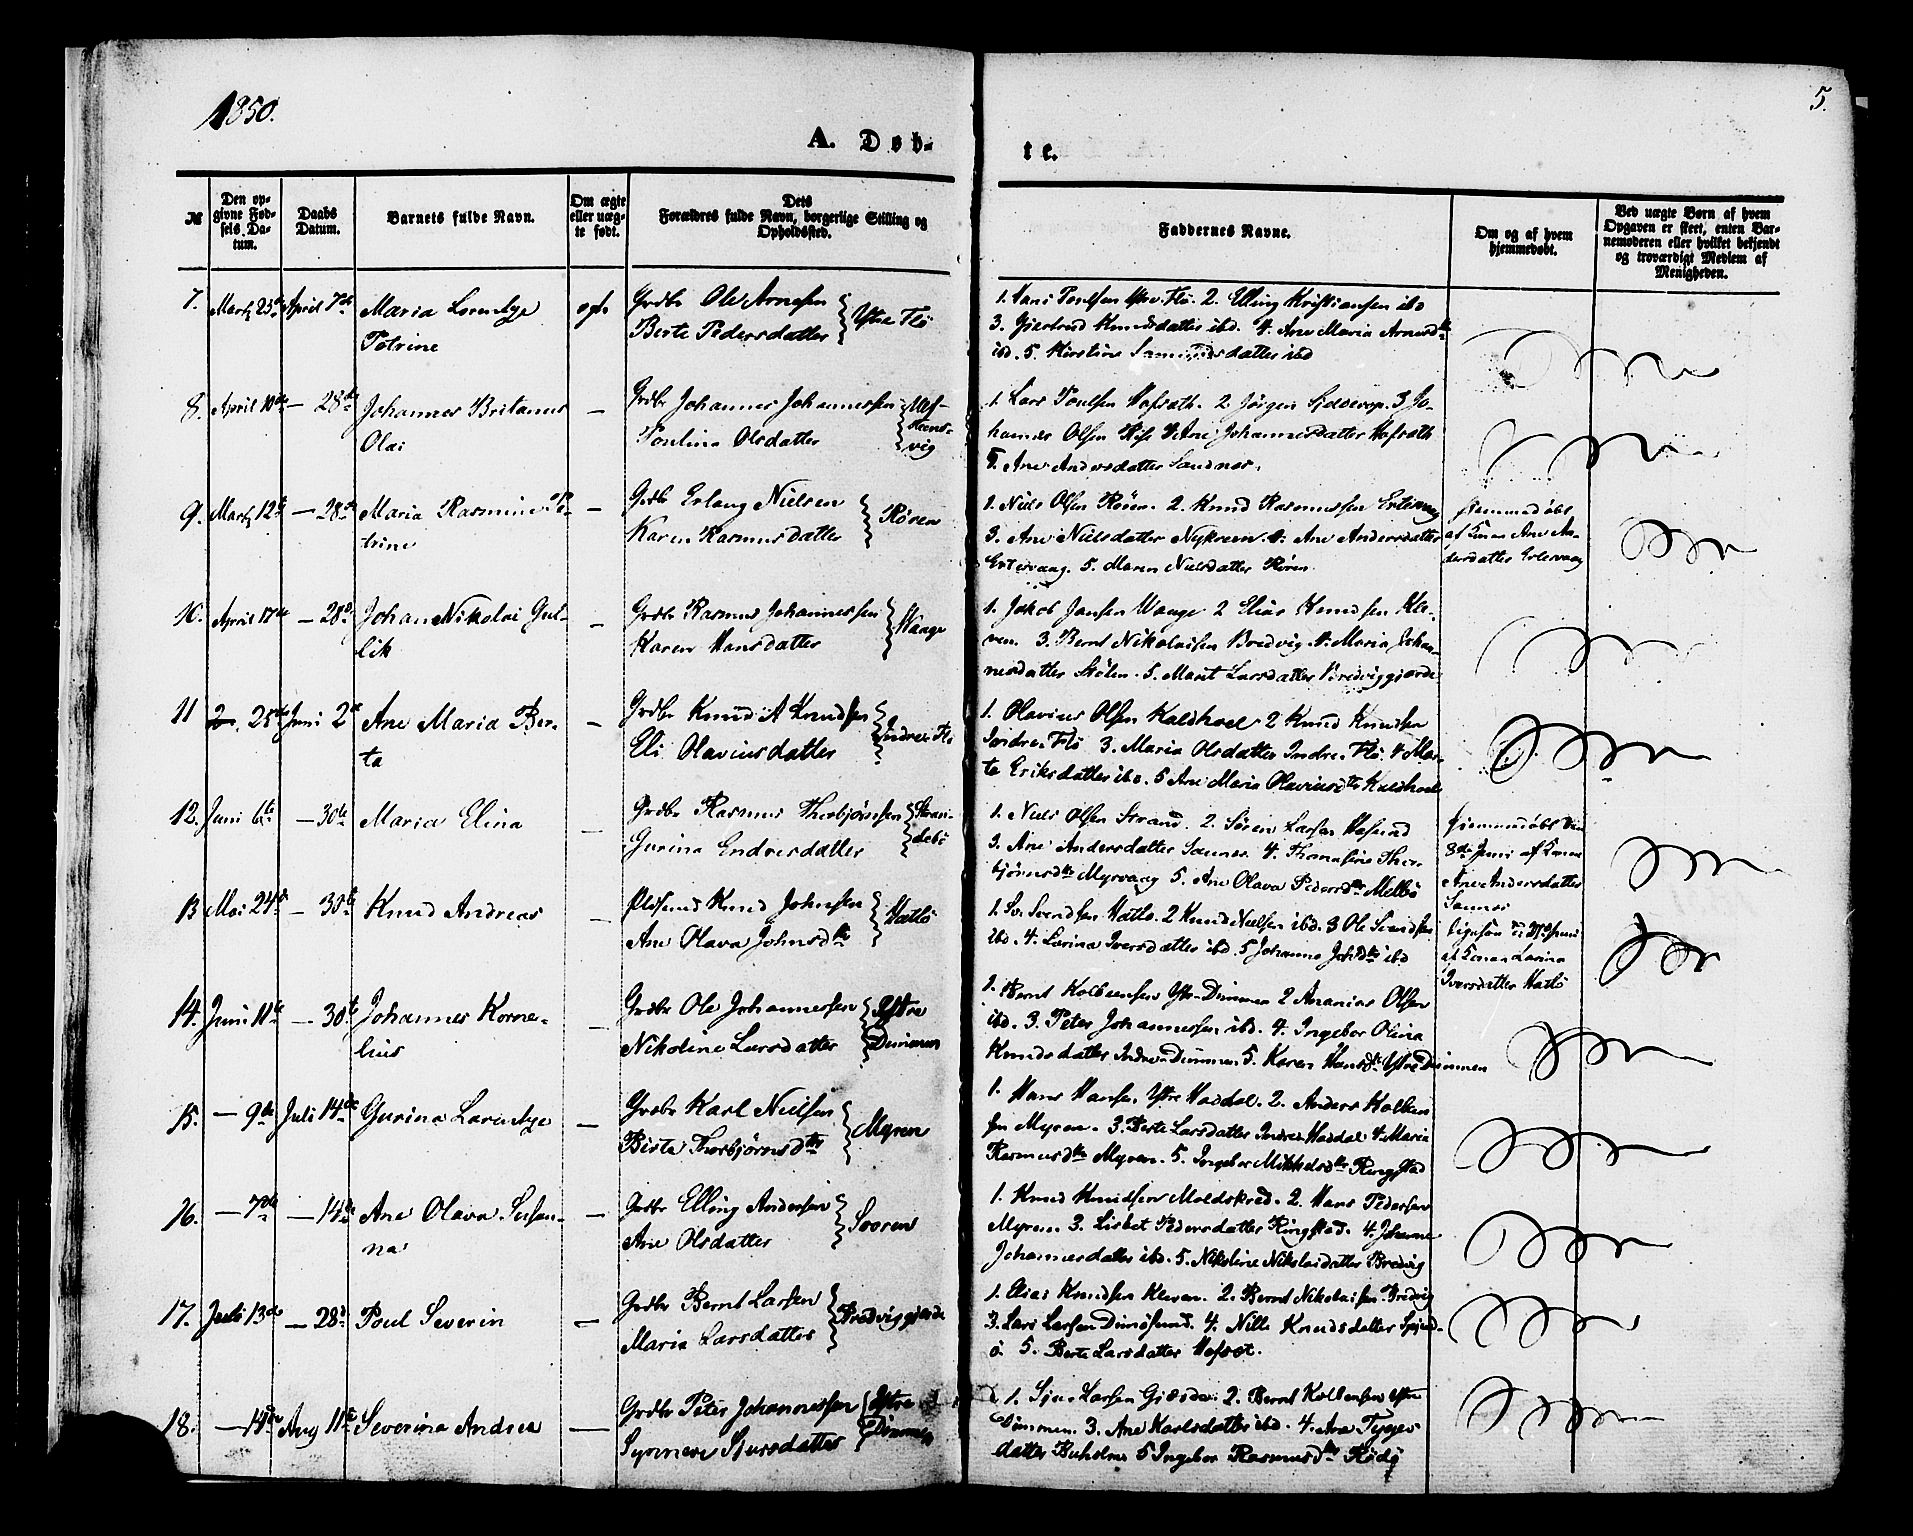 1850.
5.
A. Døb-
te.
№
Den op-
givne Fød-
sels Da-
tum.
Daabs
Datum.
Barnets fulde Navn.
Om ægte
eller uæg-
te født.
Dets
Forældres fulde Navn, borgerlige Stilling og
Opholdssted.
Faddernes Navne.
Om og af hvem
hjemmedøbt.
Ved uægte Børn af hvem
Opgaven er skeet, enten Bar-
nemoderen eller hvilket bekjendt
og troværdigt Medlem af
Menigheden.
7. April 7de Maria Lorentze
Petrine
Grdbr Ole Arnesen
Berte Pedersdatter
Ytre Flø
1. Hans Poulsen Ytre Flø. 2. Elling Kristiansen ibd
3. Gjertrud Knudsdatter ibd. 4. Ane Maria Arnesd
ibd. 5. Kirstine datter ibd
8. April 10de — 28de Johannes Britanus
Olai
—
Grdbr Johannes Johannessen
Poulina Olsdatter
1. Lars Poulsen Hofsæth. 2. Jörgen 3 Jo-
hannes Olsen 4. Ane Johannesdatter Hofsæth
5. Ane Andersdatter Sandnes.
9. 12te — 28de Maria Rasmine Pe-
trine
—
Grdbr Erland Nielsen
Karen Rasmusdatter
Rören
1. Niels Olsen Rören. 2. Knud Rasmussen
3. Ane Nielsdatter 4. Ane Andersdatter
5. Maren Nielsdatter Rören
Hjemmedøbt
af Konen Ane An-
dersdatter
10. April 17de — 28de Johan Nikolai Gul-
lik
—
Grdbr Rasmus Johannessen
Karen Hansdatter
1. Jakob Jansen Waage 2 Elias Knudsen Kle-
ven. 3. Bernt Nikolaisen Bredvig. 4. Maria Johan-
nesdatter Stölen. 5. Marit Larsdatter Bredviggjærde
11 25de Juni 2den Ane Maria Ber-
ta
—
Grdbr Knud A Knudsen
Eli Olaviusdatter
Indre Flö
1. Olavius Olsen Kaldhoel 2 Knud Knudsen
Indre Flö 3. Maria Olsdatter Indre Flö. 4 Mar-
te Eriksdatter ibd. 5 Ane Maria Olaviusdtr Kaldhoel
12. Juni 6te — 30te Maria Elina
—
Grdbr Rasmus Thorbjørnsen
Gurina Endresdatter
1. Niels Olsen Strand. 2. Sören Larsen Hasund
3. Ane Andersdatter 4. Thomasine Thor-
björnsdtr Myrvaag 5. Ane Olava Pedersdtr Melbö
Hjemmedøbt den
8de Juni af Konen
Ane Andersdatter
13 Mai 24de — 30te Knud Andreas
—
Knud Johnsen
Ane Olava Johnsdtr
Hatlö
1. Svendsen Hatlö. 2 Knud Nielsen ibd. 3 Ole Svendsen
ibd. 4. Lovina Iversdatter ibd. 5 Johanne ibd
ligesaa Juni
af Konen Lovina
Iversdatter Hatlö
14. Juni 11te — 30te Johannes Korne-
lius
—
Grdbr Ole Johannessen
Nikoline Larsdatter
Ytre
Dimmen
1. Bernt Kolbensen Ytre Dimmen 2 Ananias Olsen
ibd. 3. Peter Johannessen ibd. 4. Ingebor Olina
Knudsdatter Indre Dimmen 5. Karen Hansdtr Ytre Dimmen
15. — 9de Juli 14de Gurina Lorentze
—
Grdbr Karl Nielsen
Berte Thorbjörnsdtr
Myren
1. Hans Hansen Ytre Haddal. 2. Anders Kolben-
sen Myren. 3. Berte Larsdatter Indre Haddal 4. Maria
Rasmusdtr Myren. 5. Ingebor Mikkelsdtr Ringstad
16. — 7de — 14de Ane Olava Susan-
na
—
Grdbr Elling Andersen
Ane Olsdatter
1. Knud Knudsen Moldskred. 2. Hans Pedersen
Myren. 3. Lisbet Pedersdatter Ringstad. 4. Johanne
Johannesdatter ibd. 5. Nikoline Nikolaidatter Bredvig
17. Juli 13de — 28de Poul Severin
—
Grdbr Bernt Larsen
Maria Larsdatter
Bredviggjærde
1. Elias Knudsen Kleven. 2. Bernt Nikolaisen Bredvig
3. Lars Larsen Dimösund. 4. Nille Knudsdatter
5. Berte Larsdatter
18. — Aug 11te Severina Andrea
—
Grdbr Peter Johannessen
Synneve Sjursdatter
Ytre
Dimmen
1. Larsen 2. Bernt Kolbensen Ytre
Dimmen. 3. Ane Karlsdatter ibd. 4. Ana
datter 5 Ingebor Rasmusdtr